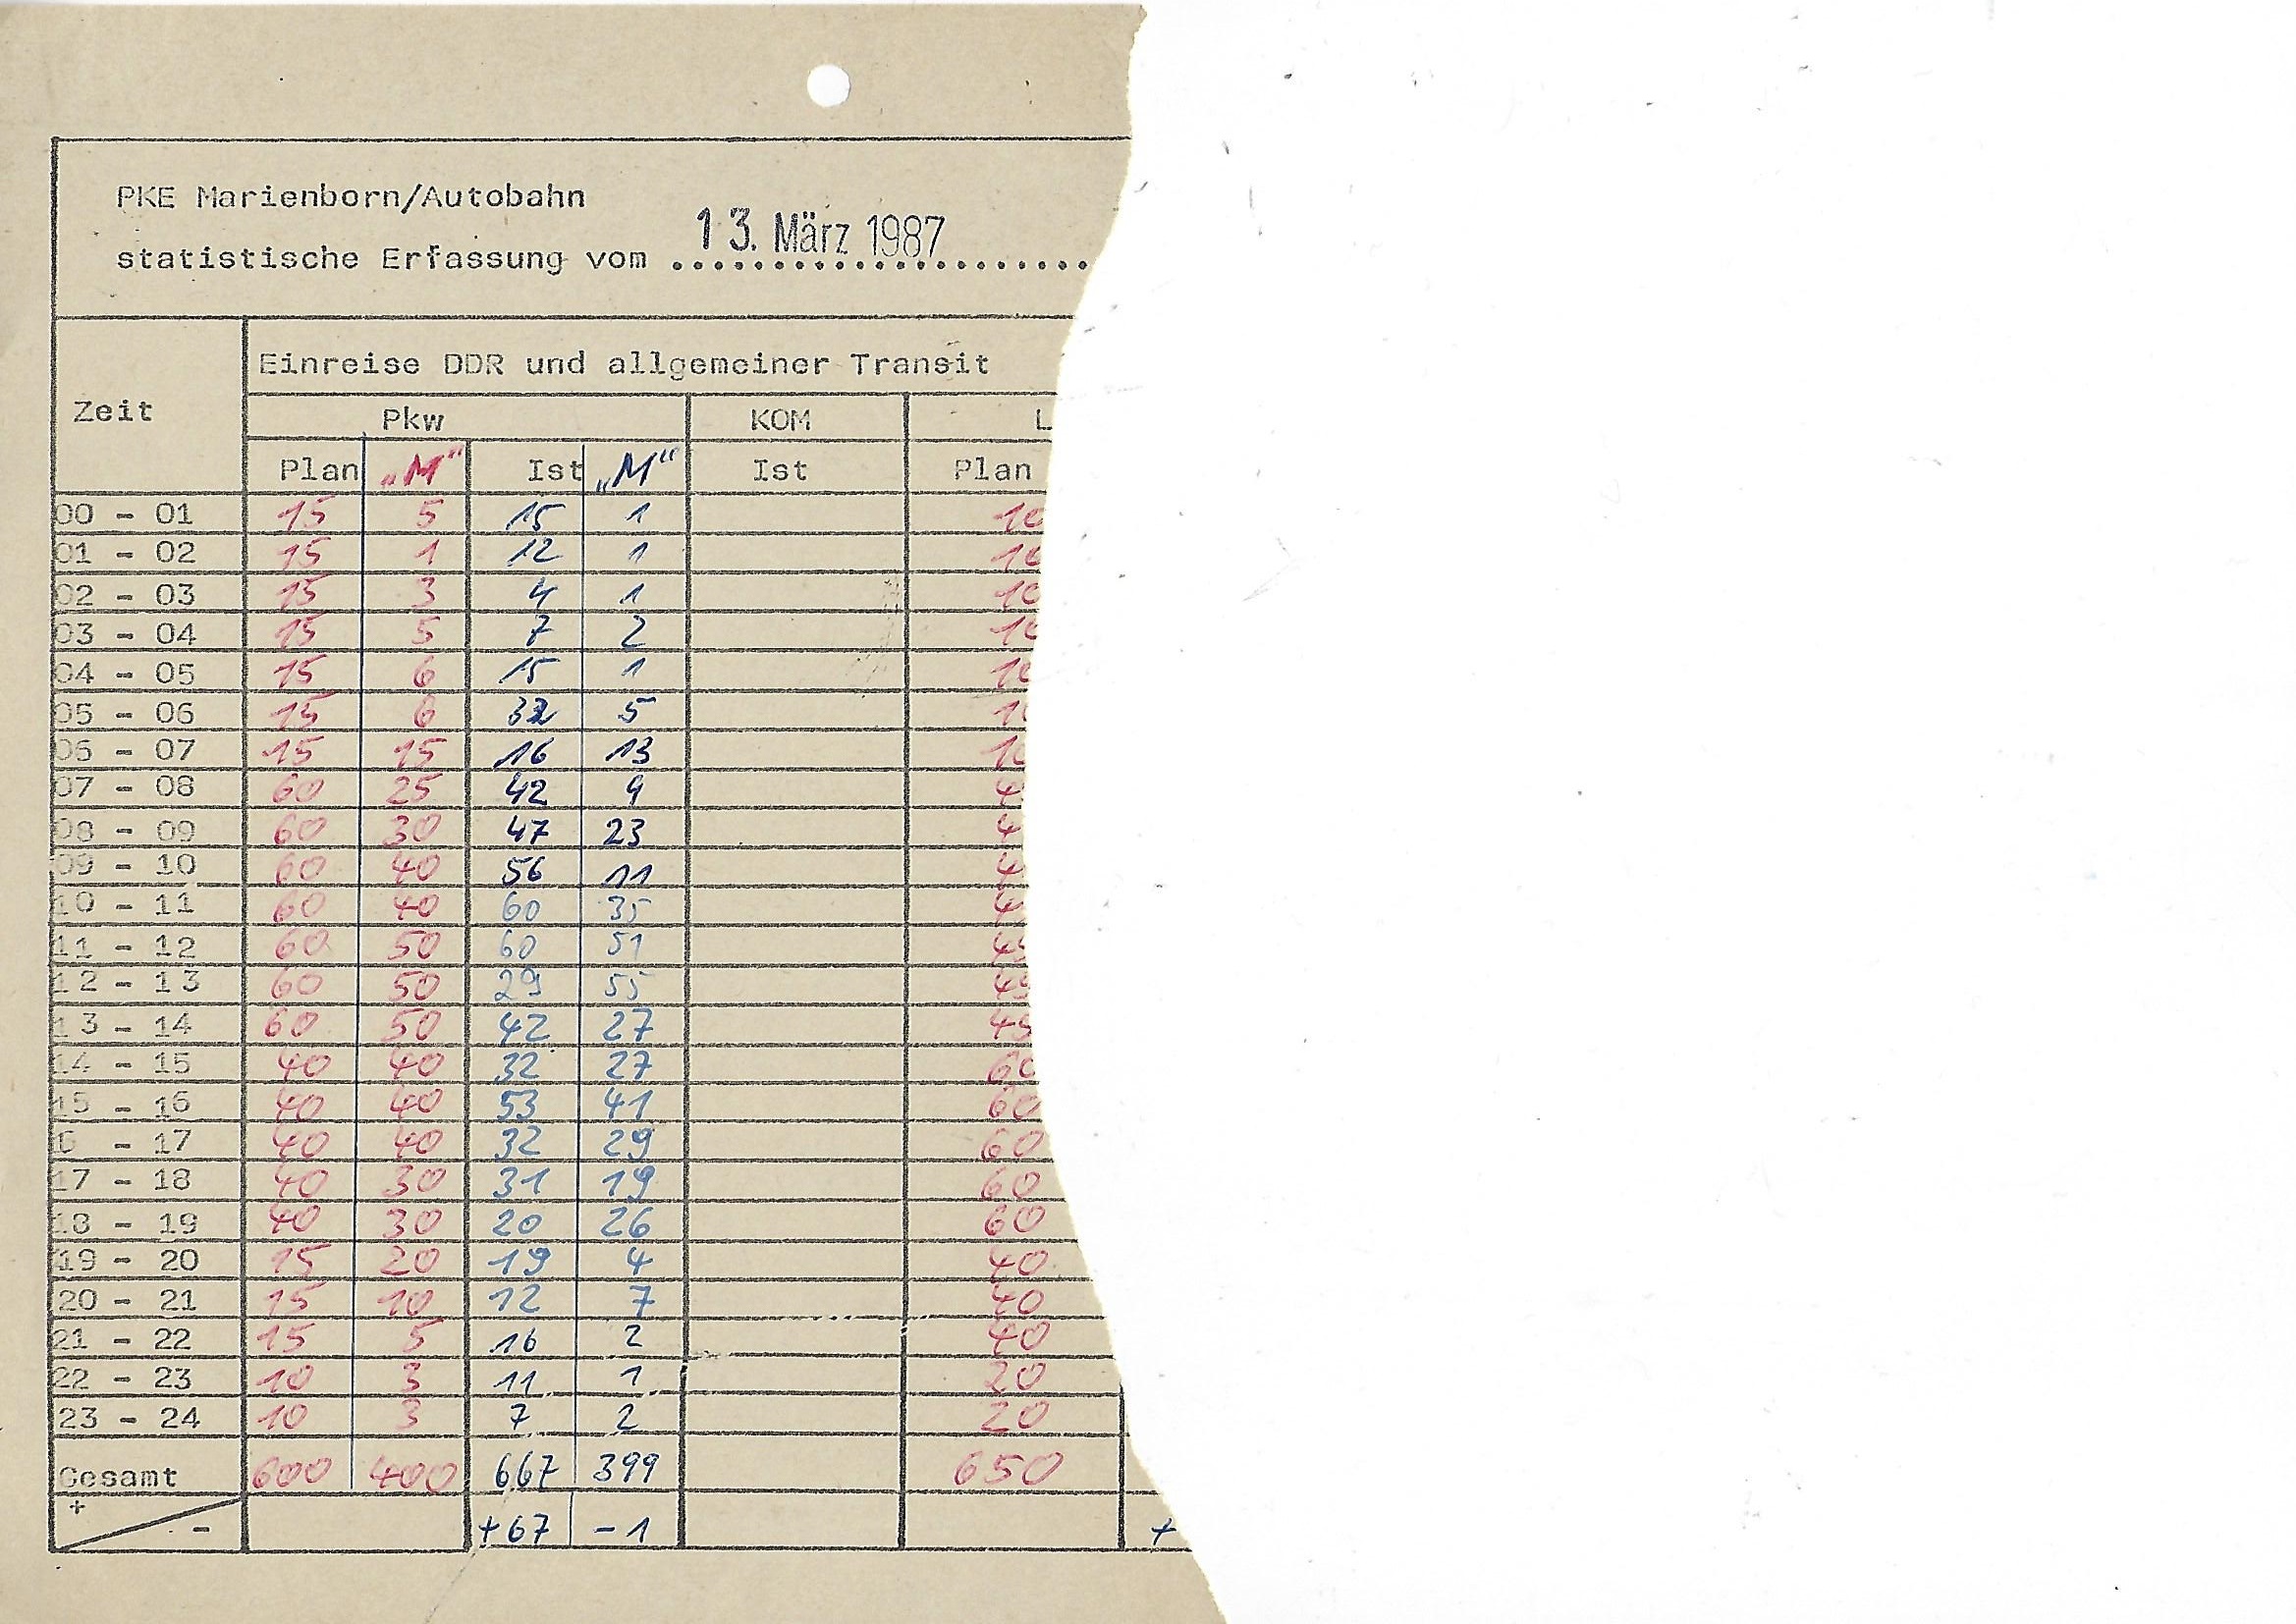 PKE Marienborn/Autobahn
statistische Erfassung vom 13. März 1987
Zeit Einreise DDR und allgemeiner Transit
Pkw KOM L
Plan „M“ Ist „M“ Ist Plan
00 - 01 15 5 15 1 10
01 - 02 15 1 12 1 10
02 - 03 15 3 4 1 10
03 - 04 15 5 7 2 10
04 - 05 15 6 15 1 10
05 - 06 15 6 32 5 10
06 - 07 15 15 16 13 10
07 - 08 60 25 42 9 4
08 - 09 60 30 47 23 4
09 - 10 60 40 56 11 4
10 - 11 60 40 60 35 4
11 - 12 60 50 60 51 45
12 - 13 60 50 29 55 45
13 - 14 60 50 42 27 45
14 - 15 40 40 32 27 60
15 - 16 40 40 53 41 60
6 - 17 40 40 32 29 60
17 - 18 40 30 31 19 60
18 - 19 40 30 20 26 60
19 - 20 15 20 19 4 40
20 - 21 15 10 12 7 40
21 - 22 15 5 16 2 40
22 - 23 10 3 11 1 20
23 - 24 10 3 7 2 20
Gesamt 600 400 667 399 650
+ - +67 -1 +